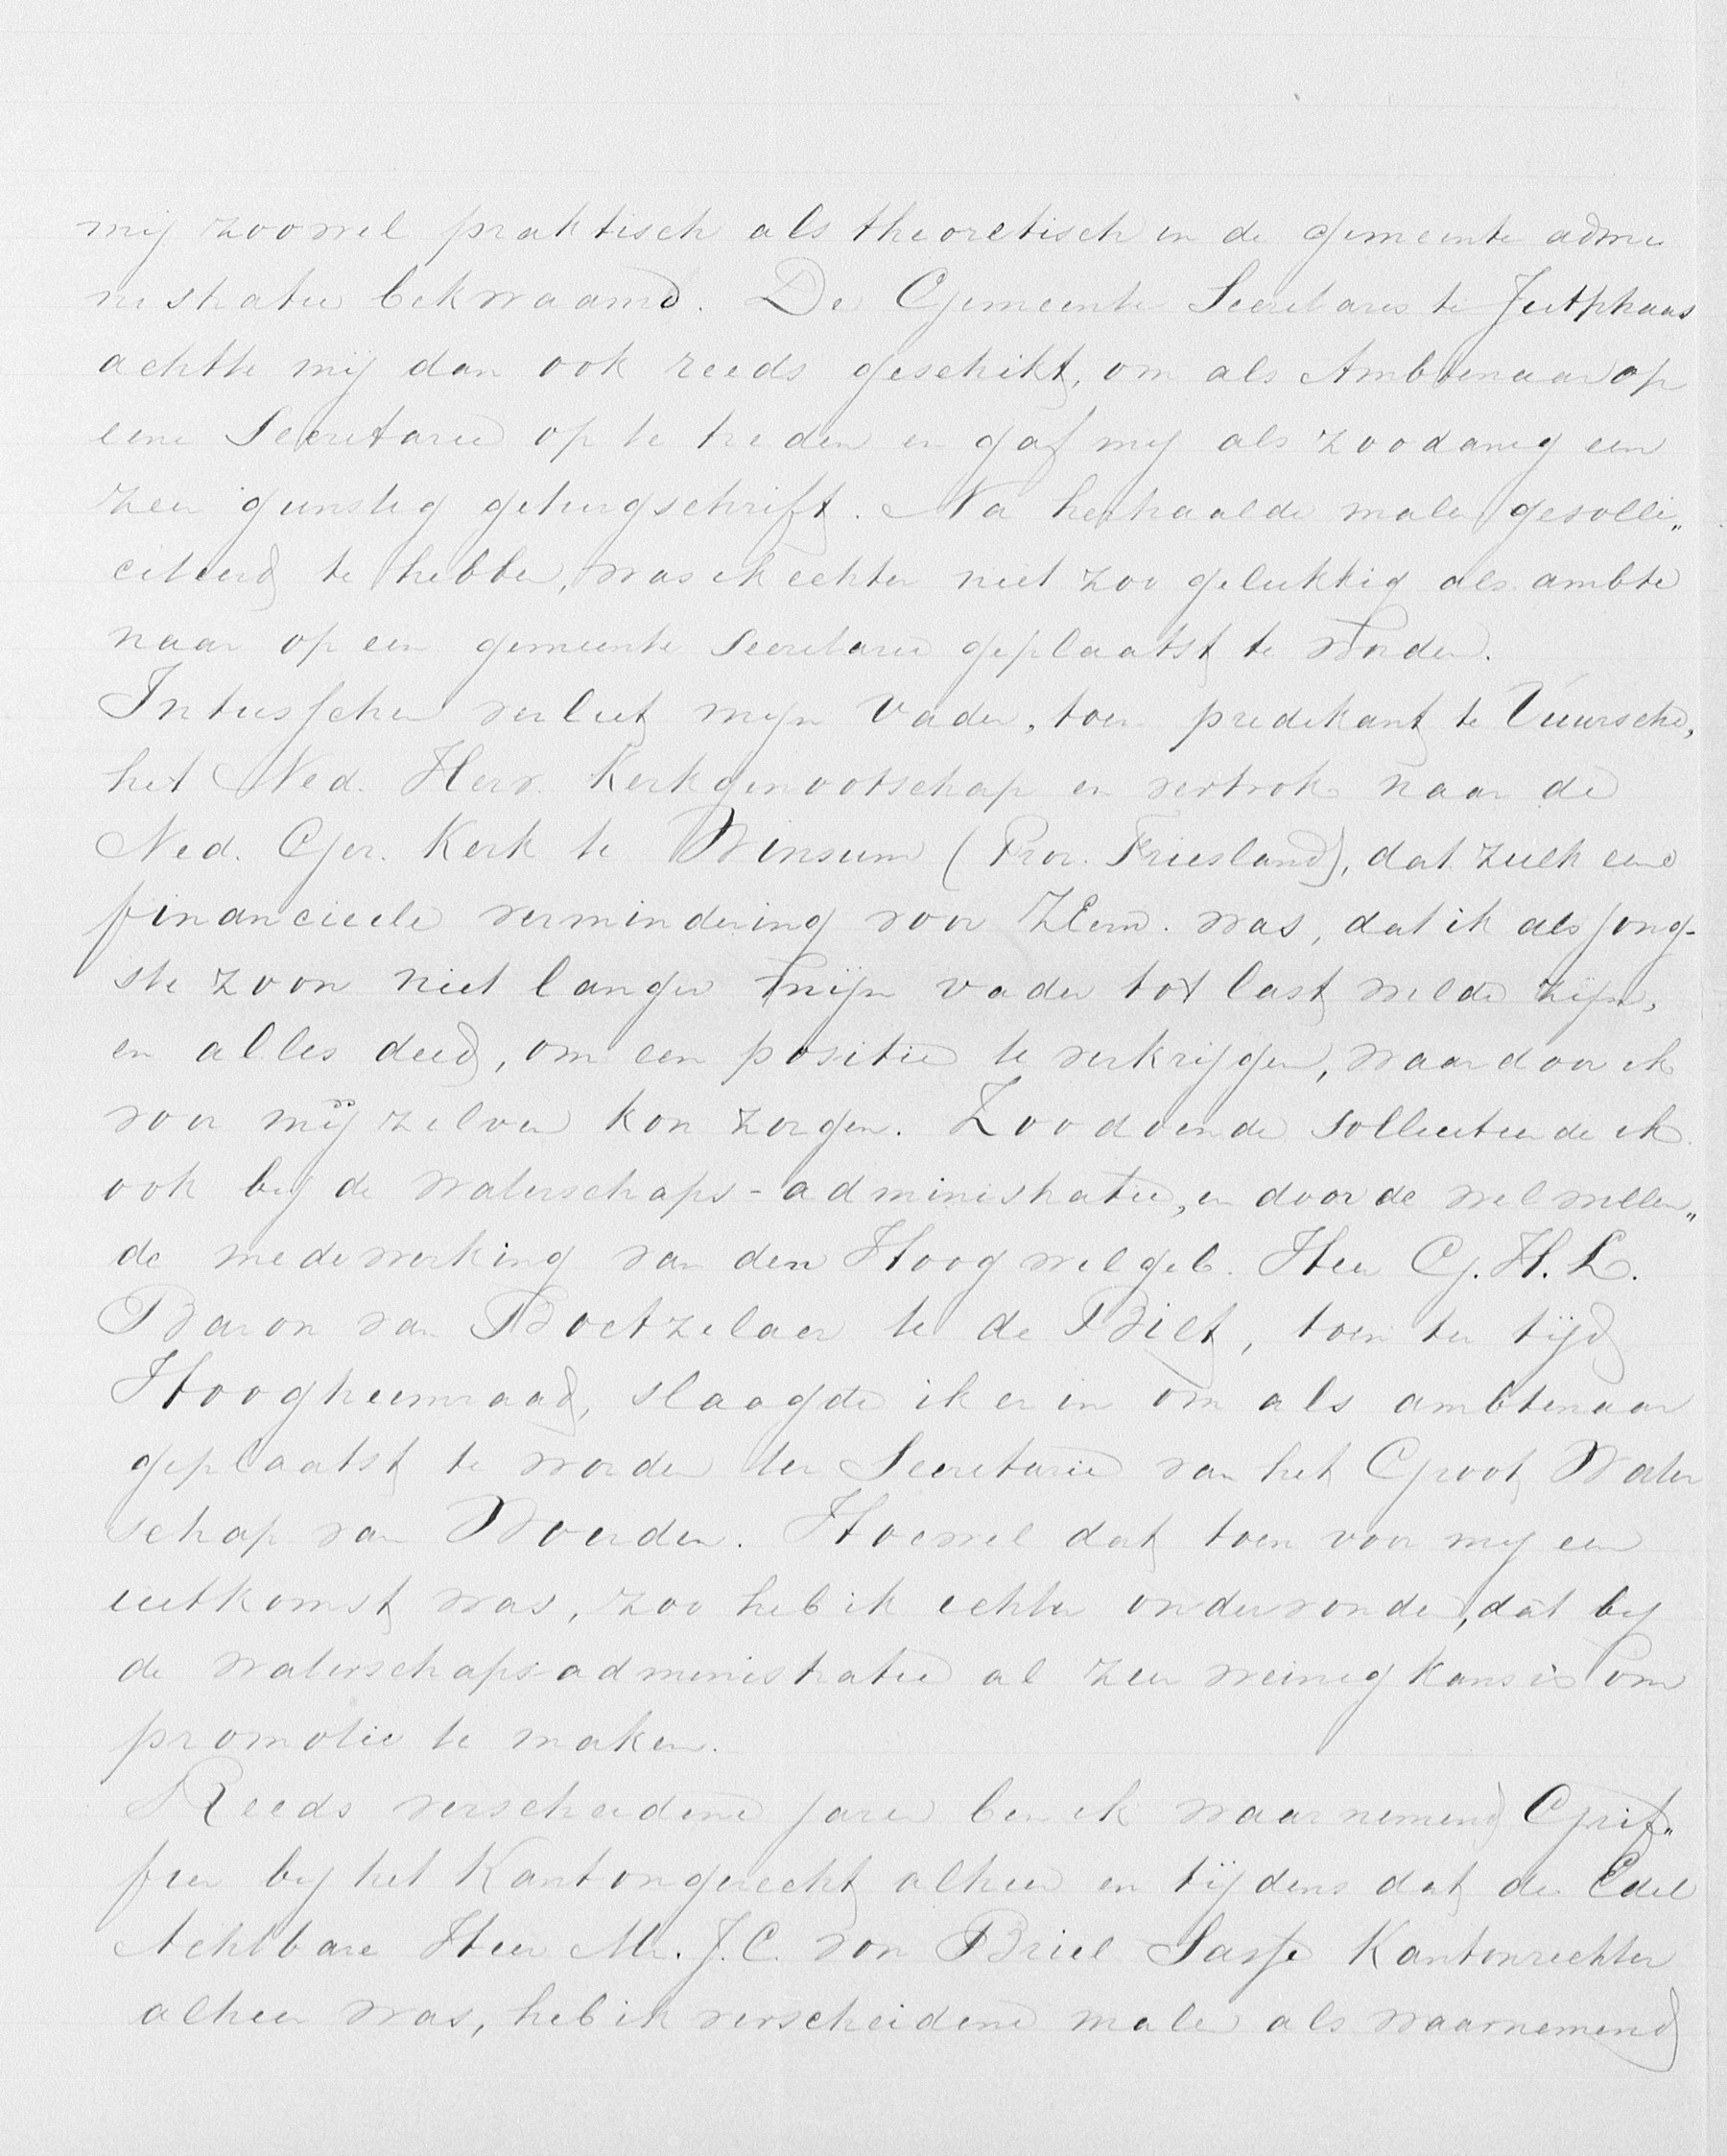 mij zoowel praktisch als theoretisch in de gemeente admi
nistratie bekwaamd. De Gemeente Secretaris te Jutphaas
achtte mij dan ook reeds geschikt, om als Ambtenaar op
eene Secretarie op te treden en gaf mij als zoodanig een
zeer gunstig getuigschrift. Na herhaalde malen gesolli„
citeerd te hebben, was ik echter niet zoo gelukkig als ambte
naar op een gemeente Secretarie geplaatst te worden.
Intusschen verliet mijn vader, toen predikant te Vuursche,
het Ned. Herv. Kerkgenootschap en vertrok naar de
Ned. Ger. Kerk te Winsum (Prov. Friesland), dat zulk eene
financieele vermindering voor ZEerw. was, dat ik als jong-
ste zoon niet langer mijn vader tot last wilde zijn,
en alles deed, om een positie te verkrijgen, waardoor ik
voor mij zelven kon zorgen. Zoodoende solliciteerde ik
ook bij de waterschaps-administratie, en door de welwillen„
de medewerking van den Hoogwelgeb. Heer G. H. L.
Baron van Boetzelaer te de Bilt, toen ter tijd
Hoogheemraad, slaagde ik er in om als ambtenaar
geplaatst te worden ter Secretarie van het Groot Water
schap van Woerden. Hoewel dat toen voor mij een
uitkomst was, zoo heb ik echter ondervonden, dat bij
de waterschapsadministratie al zeer weinig kans is om
promotie te maken.
Reeds verscheidene jaren ben ik waarnemend Grif„
fier bij het Kantongerecht alhier en tijdens dat de Edel
Achtbare Heer Mr. J. C. von Briel Sasse Kantonrechter
alhier was, heb ik verscheidene malen als waarnemend